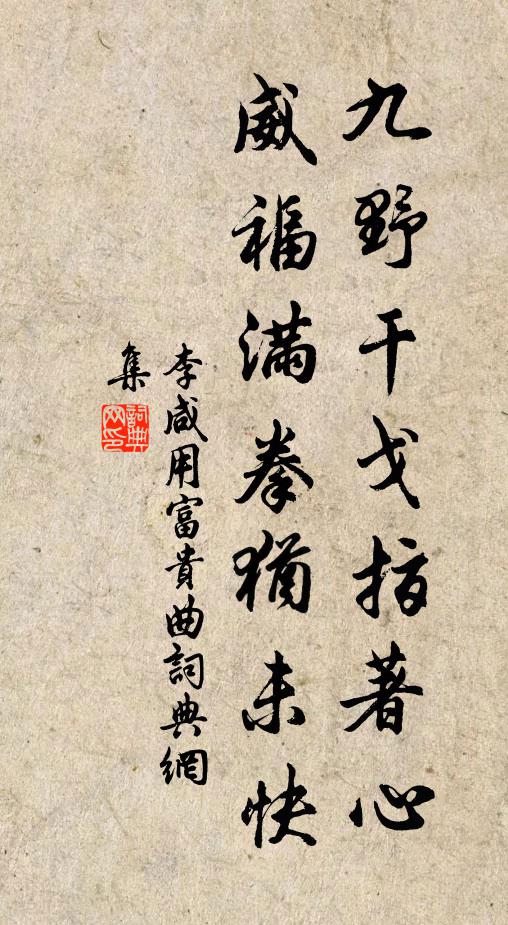 九野干戈指著心
威福滿拳猶未快
李咸用富貴曲詞典網
集
詞典
网印